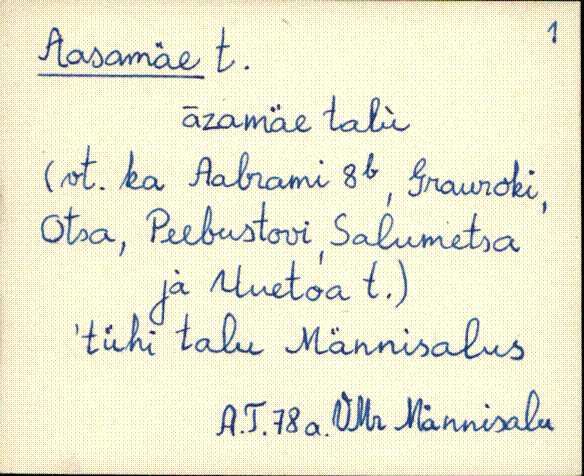 1
Aasamäe t.
āzamäe talù
(vt. ka Aabrami 8b, Grauroki,
Otsa, Peebustovi, Salumetsa
jà Uuetoa t.)
'tühi talu Männisalus
A.T.78a. VMr Männisalu